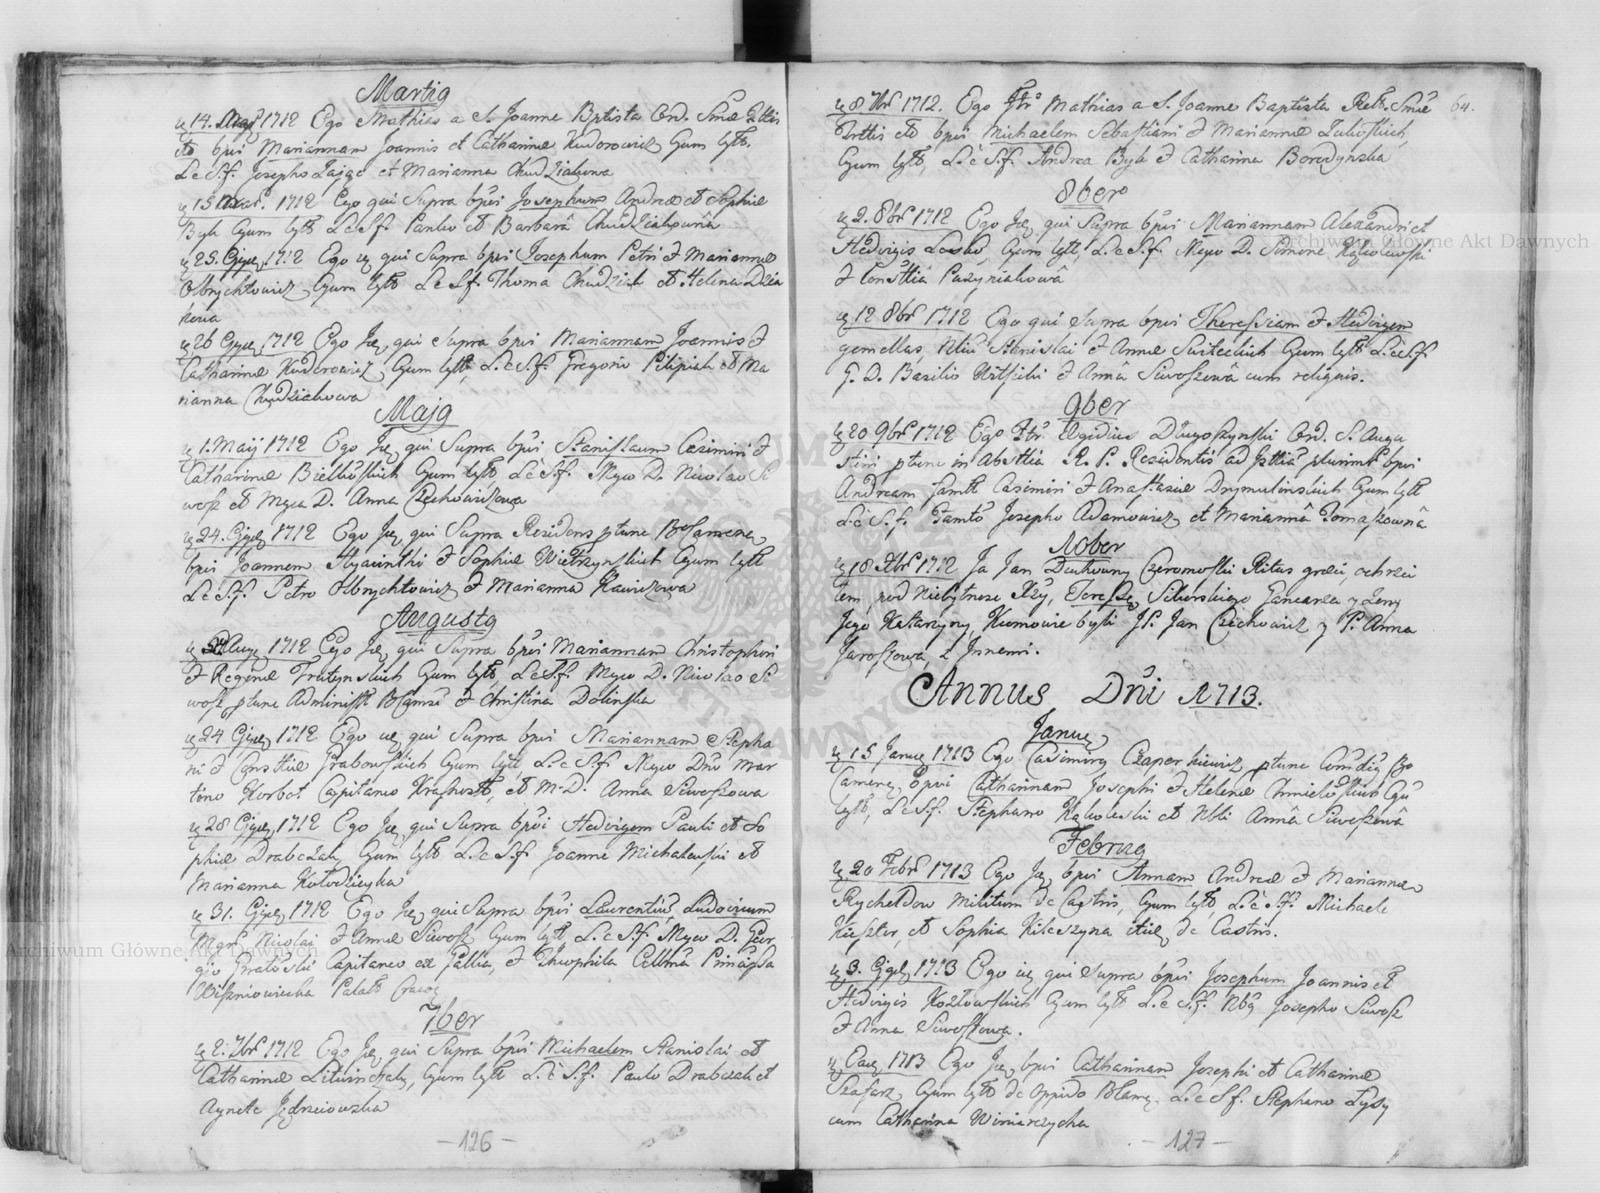 Martÿ
14. Marÿ 1712 Ego Mathias a S. Joanne Bptista Ord. Smæ Trttis
etc bpsi Mariannam Joannis et Catharinæ Kudorowicz Gum lgtt,
L. è S.f. Josepho Zając et Marianna Chudziakowa
15 Mart. 1712 Ego qui Supra bpsi Josephum Andreæ et Sophiæ
Byk Gum lgtt L. è S.f. Paulo et Barbarâ Chudziakownâ
25. Ejusd. 1712 Ego qui Supra bpsi Josephum Petri et Mariannæ
Olbrychtowicz Gum lgtt L. è S.f. Thoma Chudziak et Helena Dzia
kowa
26 Ejusd. 1712 Ego Jdē qui Supra bpsi Mariannam Joannis et
Catharinæ Kudorowicz Gum lgtt, L. è S.f. Gregorio Pilipiak et Ma
rianna Chudziakowa
Majÿ
1. Maij 1712 Ego Jdē qui Supra bpsi Stanislaum Casimiri et
Catharinæ Bielkoskich Gum lgtt L. è S.f. Mgco D. Nicolao Si
wosz et Mgca D. Anna Czechowiczowa
24. Ejusd. 1712 Ego Jdē qui Supra Residens ptunc
bpsi Joannem Hyacinthi et Sophiæ Wietrzynskich Gum lgtt
L. è S.f. Petro Olbrychtowicz et Marianna
Augusti
Aug. 1712 Ego Jdē qui Supra bpsi Mariannam Christophori
et Reginæ Trutynskich Gum lgtt L. è S.f. Mgco D. Nicolao Si
wosz ptunc Administ. et Christina Dolinska
24 Ejusd. 1712 Ego qui Supra bpsi Mariannam Stepha
ni et Constæ Grabowskich Gum lgtt L. è S.f. Mgco Dno Mar
tino Korbet Capitaneo et M. D. Anna Siwoszowa
28 Ejusd. 1712 Ego Jdē qui Supra bpsi Hedvigem Pauli et So
phiæ Drabczak Gum lgtt L. è S.f. Joanne Michalewski et
Marianna Kołodzieyka
31. Ejusd. 1712 Ego Jdē qui Supra bpsi Laurentiū, Ludovicum
Mgci Nicolai et Annæ Siwosz Gum lgtt L. è S.f. Mgco D. Geor
gio Capitaneo ex Gallia, et Theophila Cellma Principssa
Wiszniowiecka Palat. Cracov
7ber
2. 7br 1712 Ego Jdē qui Supra bpsi Michaelem Stanislai et
Catharinæ Litwinczak, Gum lgtt L. è S.f. Paulo Drabczak et
Agnete Jędrzeiowska
- 126 -
8 7br 1712. Ego Ftr. Mathias a S. Joanne Baptista Smæ 64.
Trttis etc bpsi Michaelem Sebastiani et Mariannæ
Gum lgtt, L. è S.f. Andrea Byk et Catharina Borodynska
8bero
2. 8br 1712 Ego Jdē qui Supra bpsi Mariannam Alexandri et
Hedvigis Gum lgtt, L. è S.f. Mgco D. Simone Kąkolewski
et Constia Pazyniakowâ
12 8br 1712 Ego qui Supra bpsi Theressiam et Hedvigem
gemellas, Stanislai et Annæ Gum lgtt L. è S.f.
G. D. Basilio et Annâ Siwoszowâ cum reliquis.
9ber
20 9br 1712 Ego Ftr. Egidius Długoszynski Ord. S. Augu
stini ptunc in Absttia R. P. Residentis ad bpsi
Andream famtt Casimiri et Anastasiæ Drymulinskich Gum lgtt
L. è S.f. Famto Josepho Adamowicz et Mariannâ Tomaszownâ
10ber
18 Xbr 1712 Ja Jan Czeromoski Ritus græci ochrzci
łem, pod niebytnosc Xży, Teresse Sikorskiego Gancarza y żony
Jego Katarzyny Kumowie byli JP. Jan Czechowicz y P. Anna
Jaroszowa, z Innemi.
Annus Dni 1713.
Januÿ
15 Januÿ 1713 Ego Casimirg Czaperkiewicz ptunc Comdiş
bpsi Catharinam Josephi et Helenæ Gu
lgtt, L. è S.f. Stephano Kąkoleski et Nbli Annâ Siwoszowâ
Februÿ
20 Febr 1713 Ego Jdē bpsi Annam Andreæ et Mariannæ
Rycheldow Militum de Castris, Gum lgtt, L. è S.f. Michaele
Kieszter, et Sophia Kileszyna itid. de Castris.
3. Ejusd. 1713 Ego qui Supra bpsi Josephum Joannis et
Hedvigis Kozłowskich Gum lgtt L. è S.f. Josepho Siwosz
et Anna Siwoszowa.
Eadē 1713 Ego Jdē bpsi Catharinam Josephi et Catharinæ
Szafarz Gum lgtt de oppido L. è S.f. Stephano Łysy
cum Catharina Winiarczycha
- 127 -
Archiwum Główne Akt Dawnych
Archiwum Główne Akt Dawnych